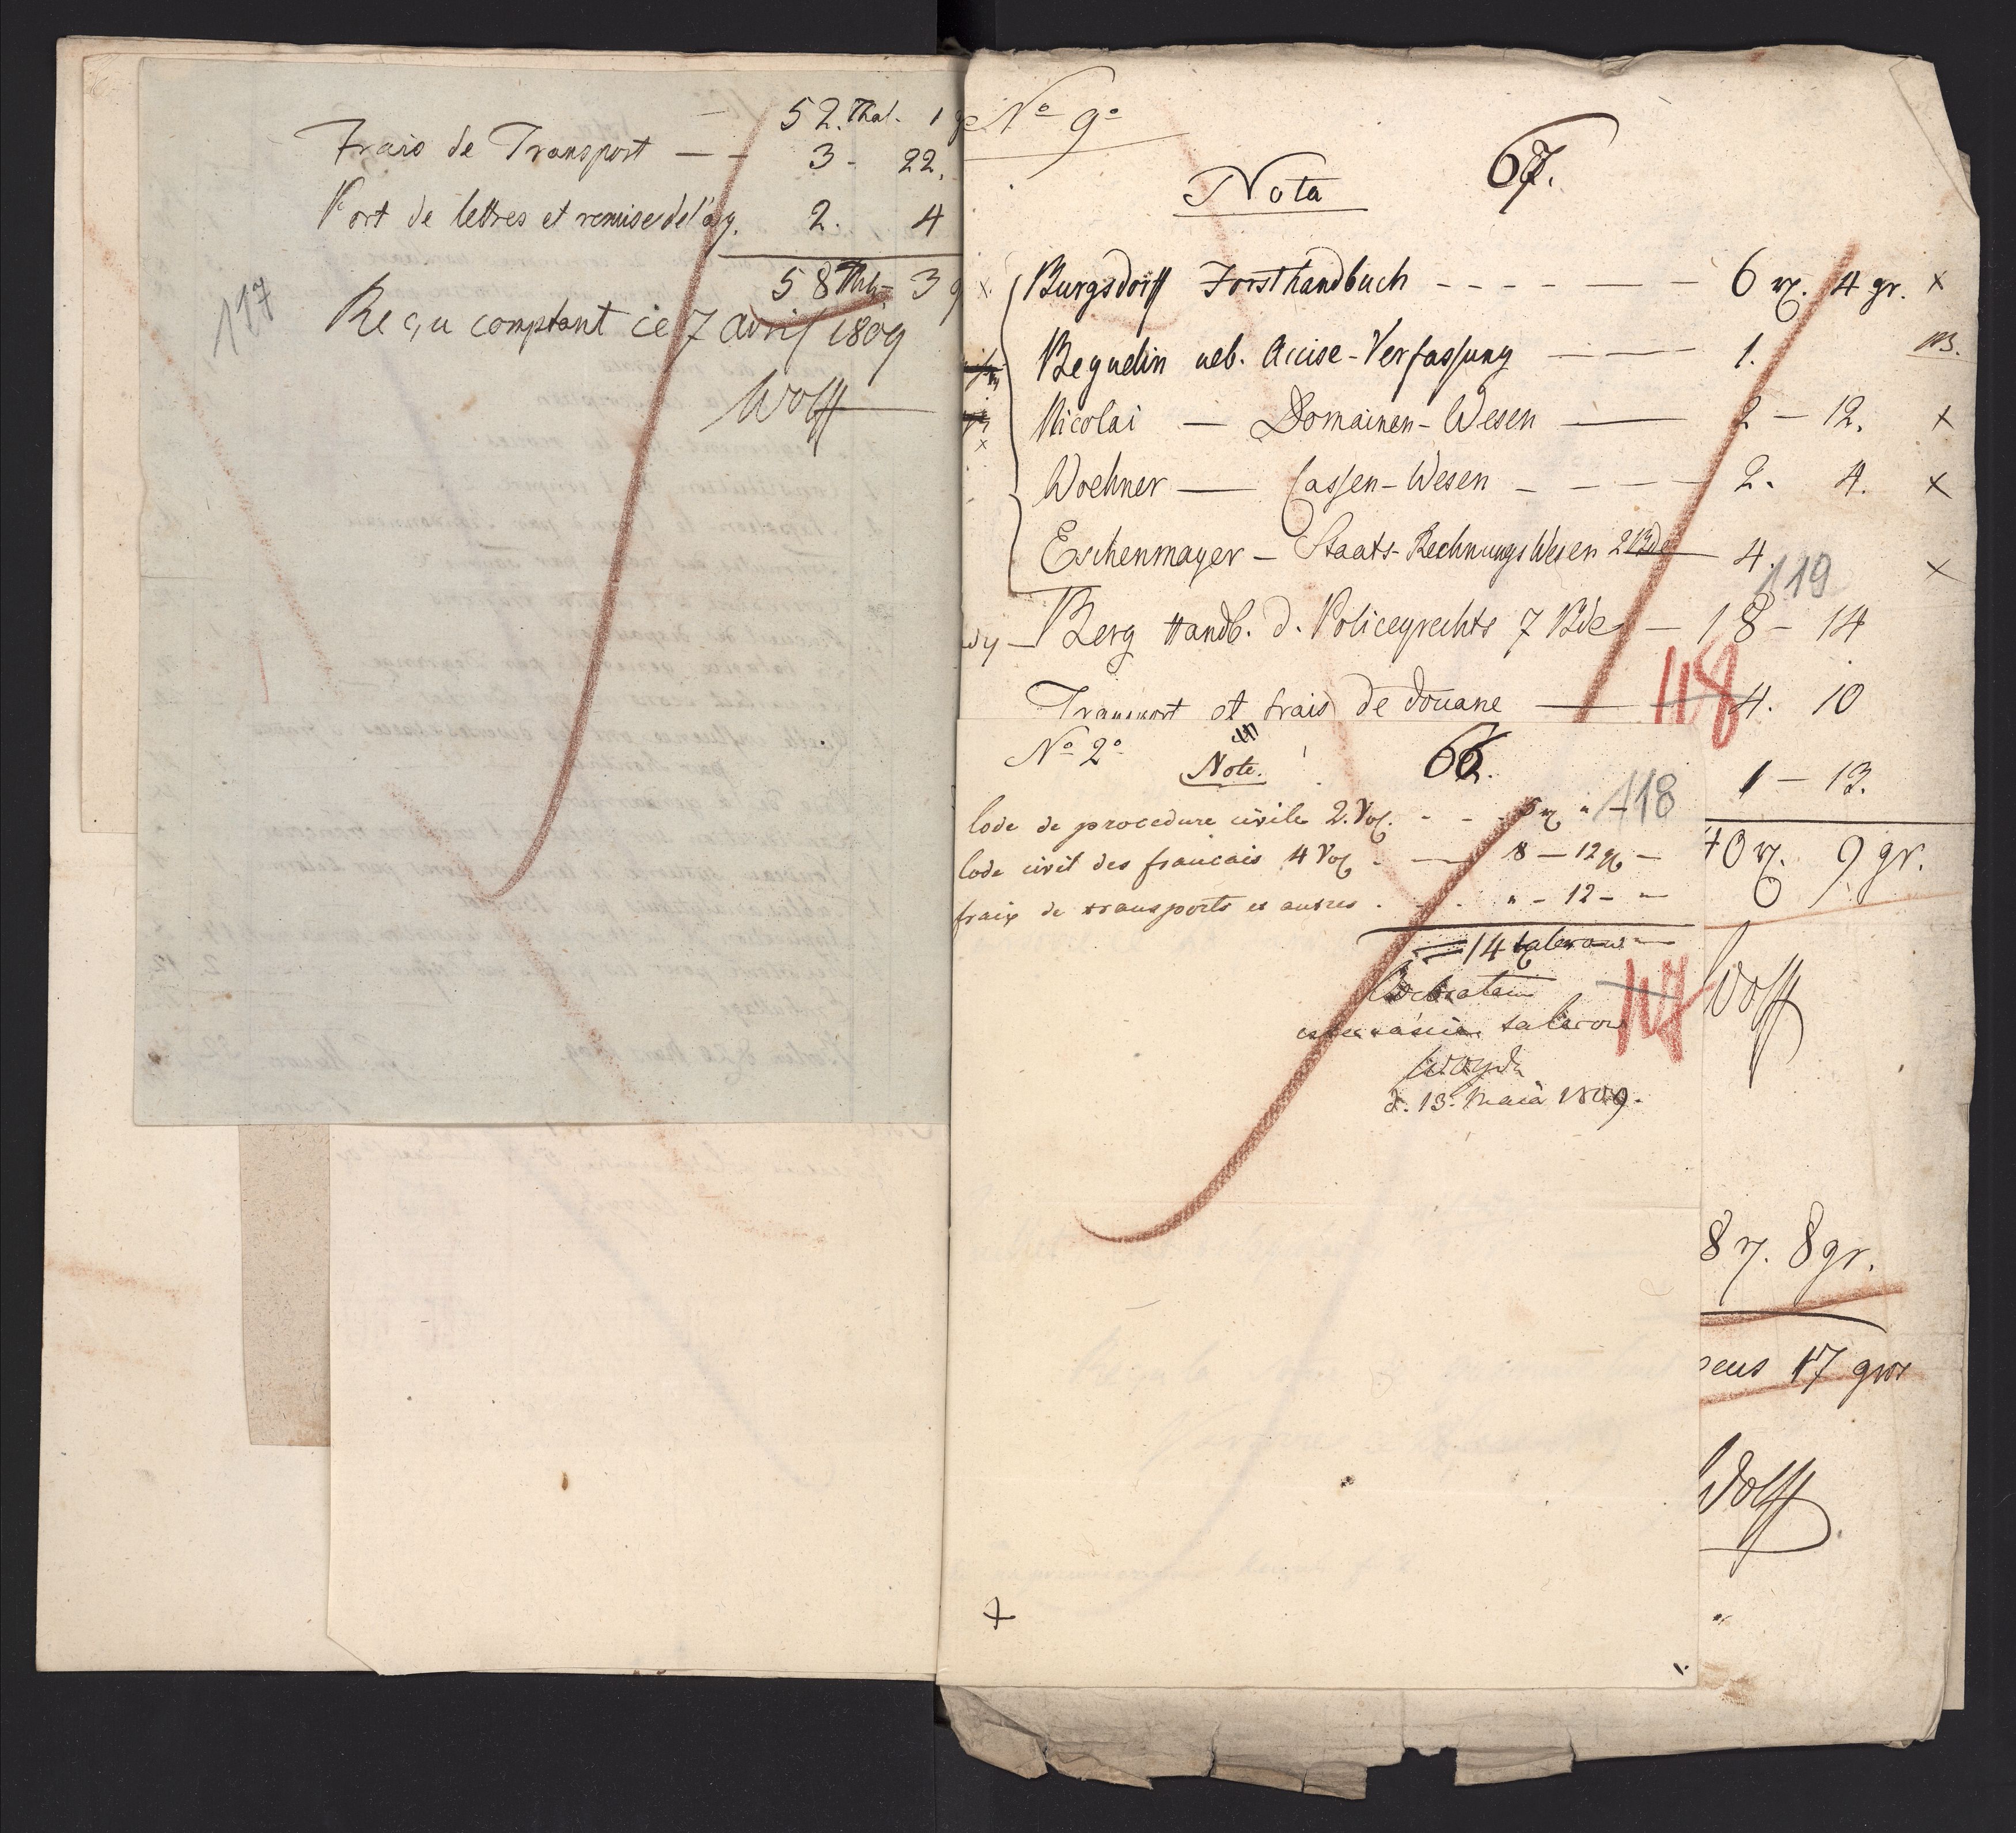 52. Thal. 1
Frais de Transport — — 3 - 22.
Port de lettres et remise de l'arg. 2. 4
58 Thl. 3 g
Reçu comptant ce 7 avril 1809
Wolff
117
No 9o
67.
Nota
Burgsdorff Forsthandbuch - - - - — — 6 rt. 4 gr. x
Beguelin ueb. Accise-Verfassung — — 1. NB.
Nicolai — Domainen-Wesen — 2 — 12. x
Woehner — Cassen-Wesen - - - - 2. 4. x
Eschenmayer — Staats-RechnungsWesen 2 Bde — 4. x
119
Berg Handb. d. Policeyrechts 7 Bde — 18 - 14
Transport et frais de douane — 4. 10
118
1 — 13.
40 rt. 9 gr.
Wolff
8 rt. 8 gr.
17 gros
Wolff
No 2o
66.
Note.
118
Code de procedure civile 2. Vol. - - 5 rt " —
Code civil des francais 4 Vol - — 8 — 12 g —
fraix de transports et autres . - . " - 12 - —
= 14 talarow —
117
talarow
d. 13. Maia 1809.